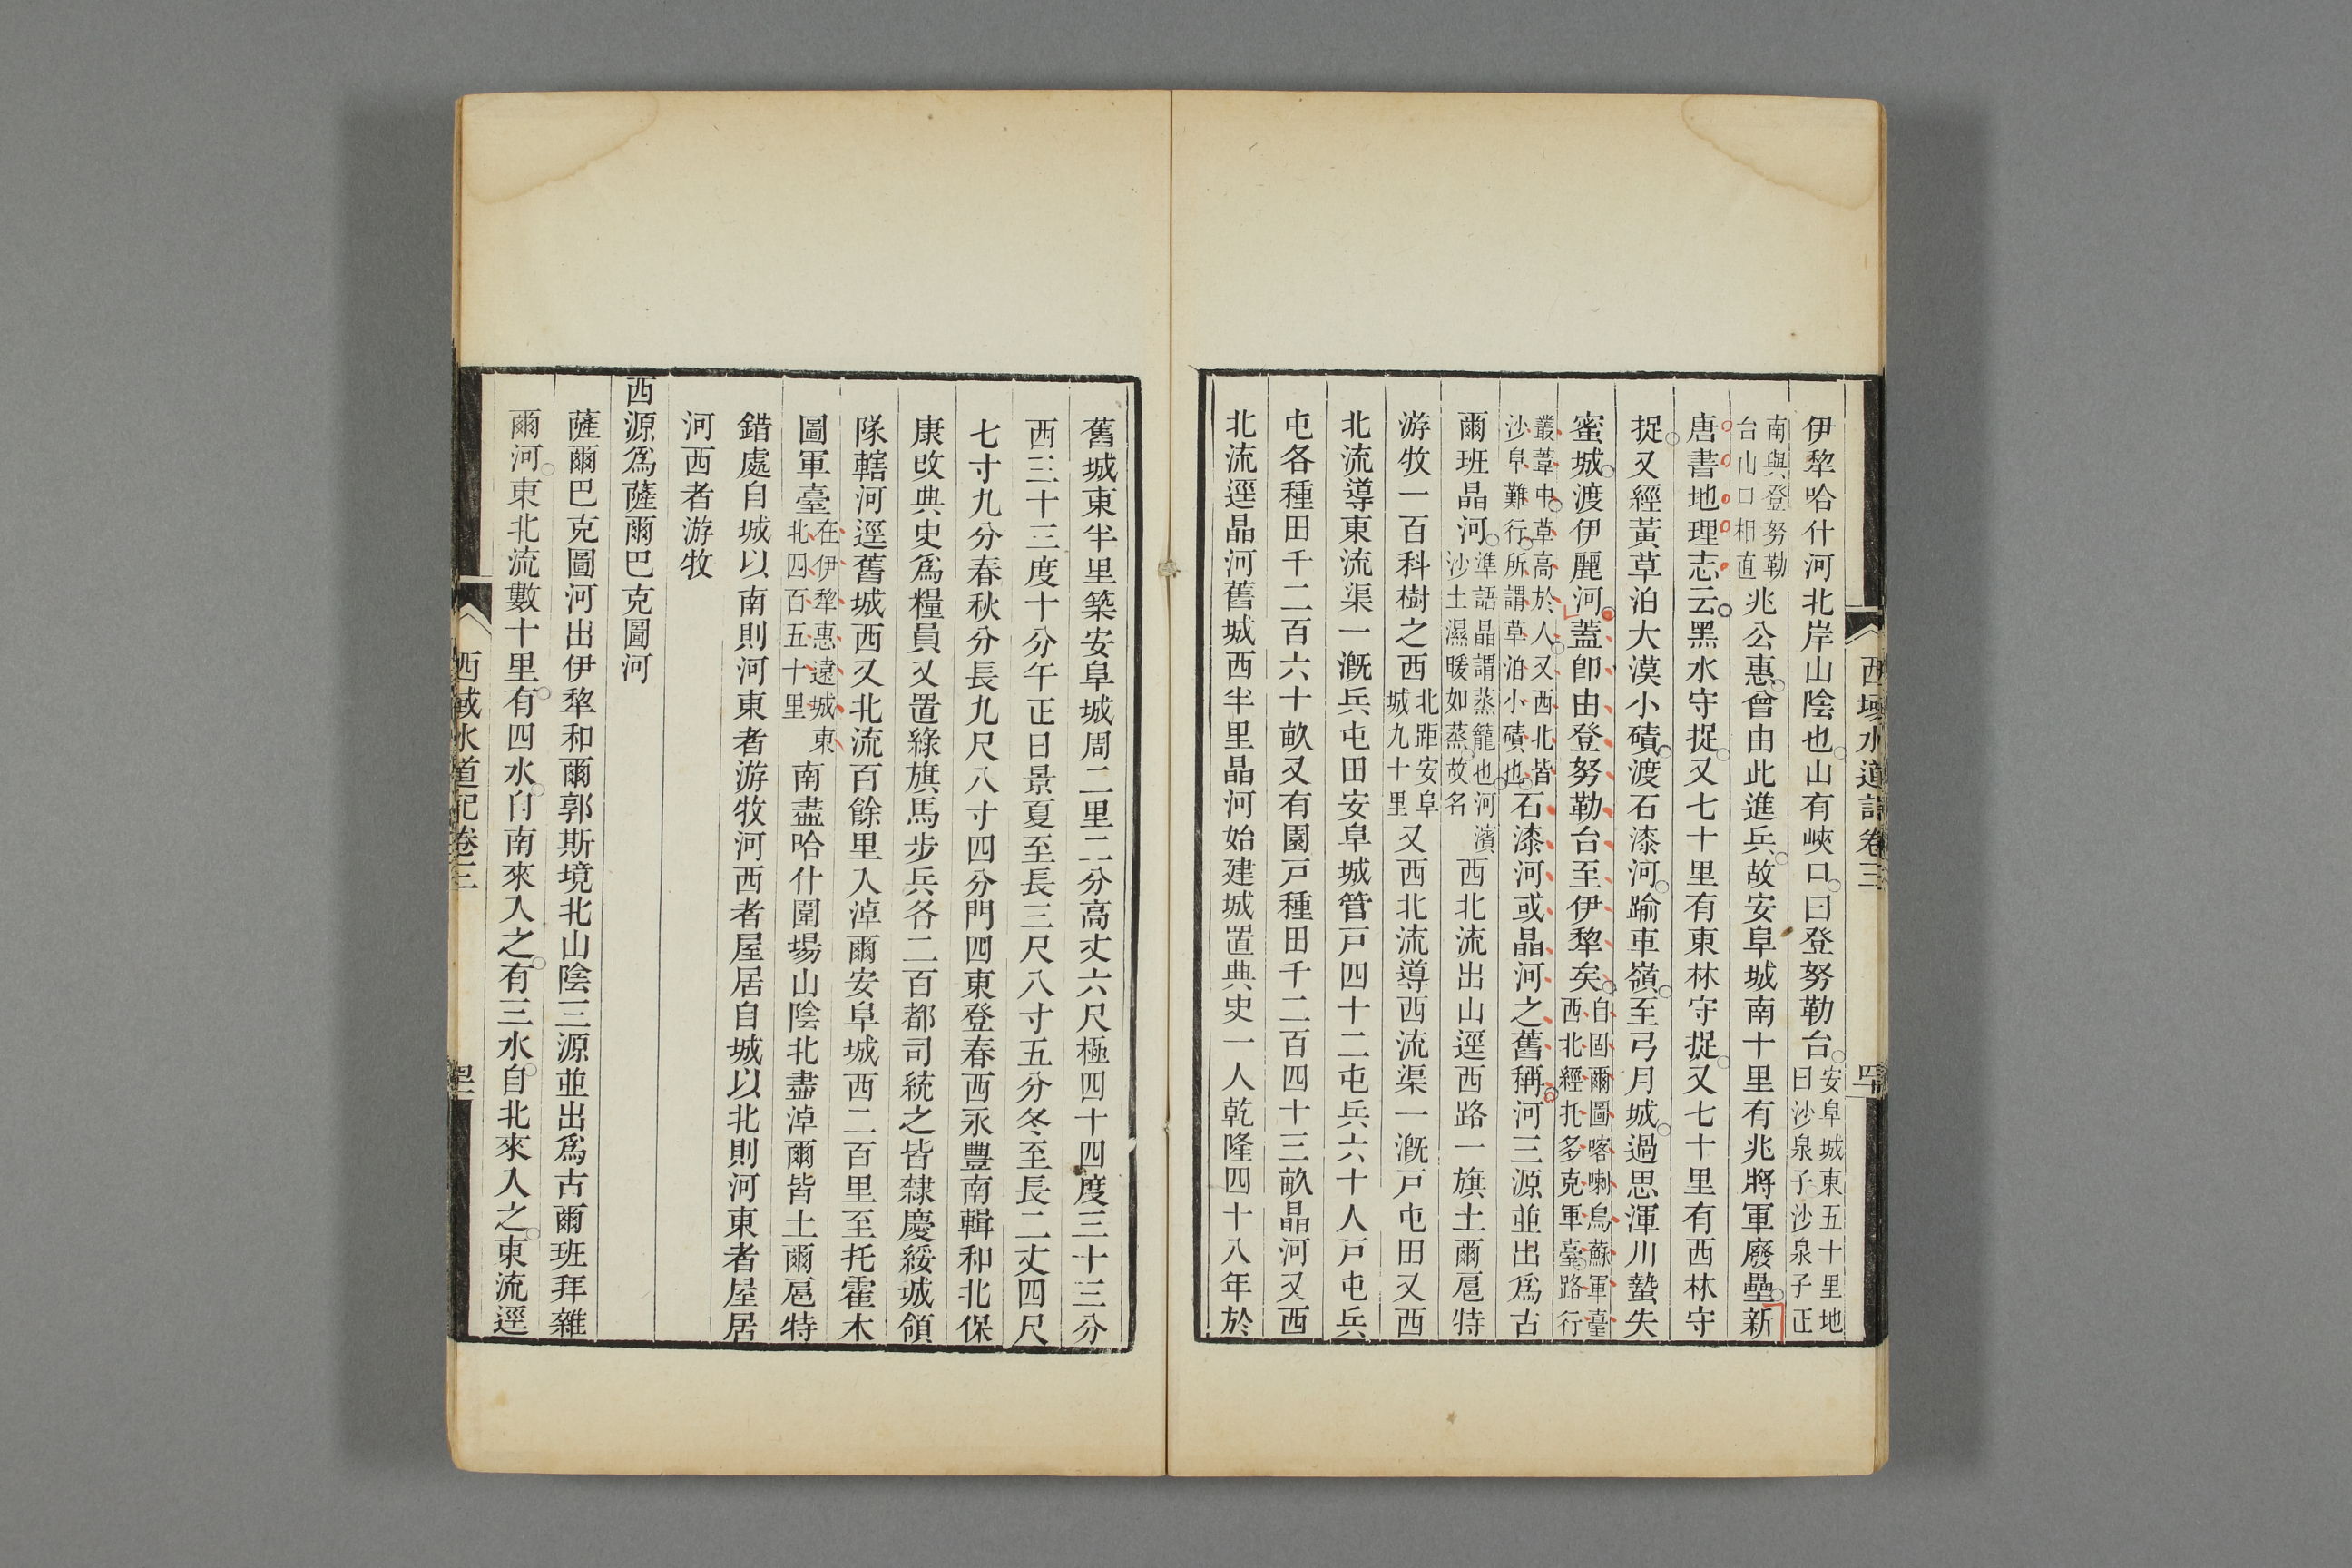 西域水道記卷三
伊犂哈什河北岸山陰也山有峽口曰登努勒台安阜城東五十里地曰沙泉子沙泉子正
南與登努勒台山口相直兆公惠曾由此進兵故安阜城南十里有兆將軍廢壘新
唐書地理志云黑水守捉又七十里有東林守捉又七十里有西林守
捉又經黃草泊大漠小磧渡石漆河踰車嶺至弓月城過思渾川蟄失
蜜城渡伊麗河蓋卽由登努勒台至伊犂矣自固爾圖喀喇烏蘇軍臺西北經托多克軍臺路行
叢葦中草高於人又西北皆沙阜難行所謂草泊小磧也石漆河或晶河之舊稱河三源並出爲古
爾班晶河準語晶謂蒸籠也河濱沙土濕暖如蒸故名西北流出山逕西路一旗土爾扈特
游牧一百科樹之西北距安阜城九十里又西北流導西流渠一漑戸屯田又西
北流導東流渠一漑兵屯田安阜城管戸四十二屯兵六十人戸屯兵
屯各種田千二百六十畝又有園戸種田千二百四十三畝晶河又西
北流逕晶河舊城西半里晶河始建城置典史一人乾隆四十八年於
舊城東半里築安阜城周二里二分高丈六尺極四十四度三十三分
西三十三度十分午正日景夏至長三尺八寸五分冬至長二丈四尺
七寸九分春秋分長九尺八寸四分門四東登春西永豐南輯和北保
康改典史爲糧員又置綠旗馬步兵各二百都司統之皆隸慶綏城領
隊轄河逕舊城西又北流百餘里入淖爾安阜城西二百里至托霍木
圖軍臺在伊犂惠遠城東北四百五十里南盡哈什圍場山陰北盡淖爾皆土爾扈特
錯處自城以南則河東者游牧河西者屋居自城以北則河東者屋居
河西者游牧
西源爲薩爾巴克圖河
薩爾巴克圖河出伊犂和爾郭斯境北山陰三源並出爲古爾班拜雜
爾河東北流數十里有四水自南來入之有三水自北來入之東流逕
西域水道記卷三